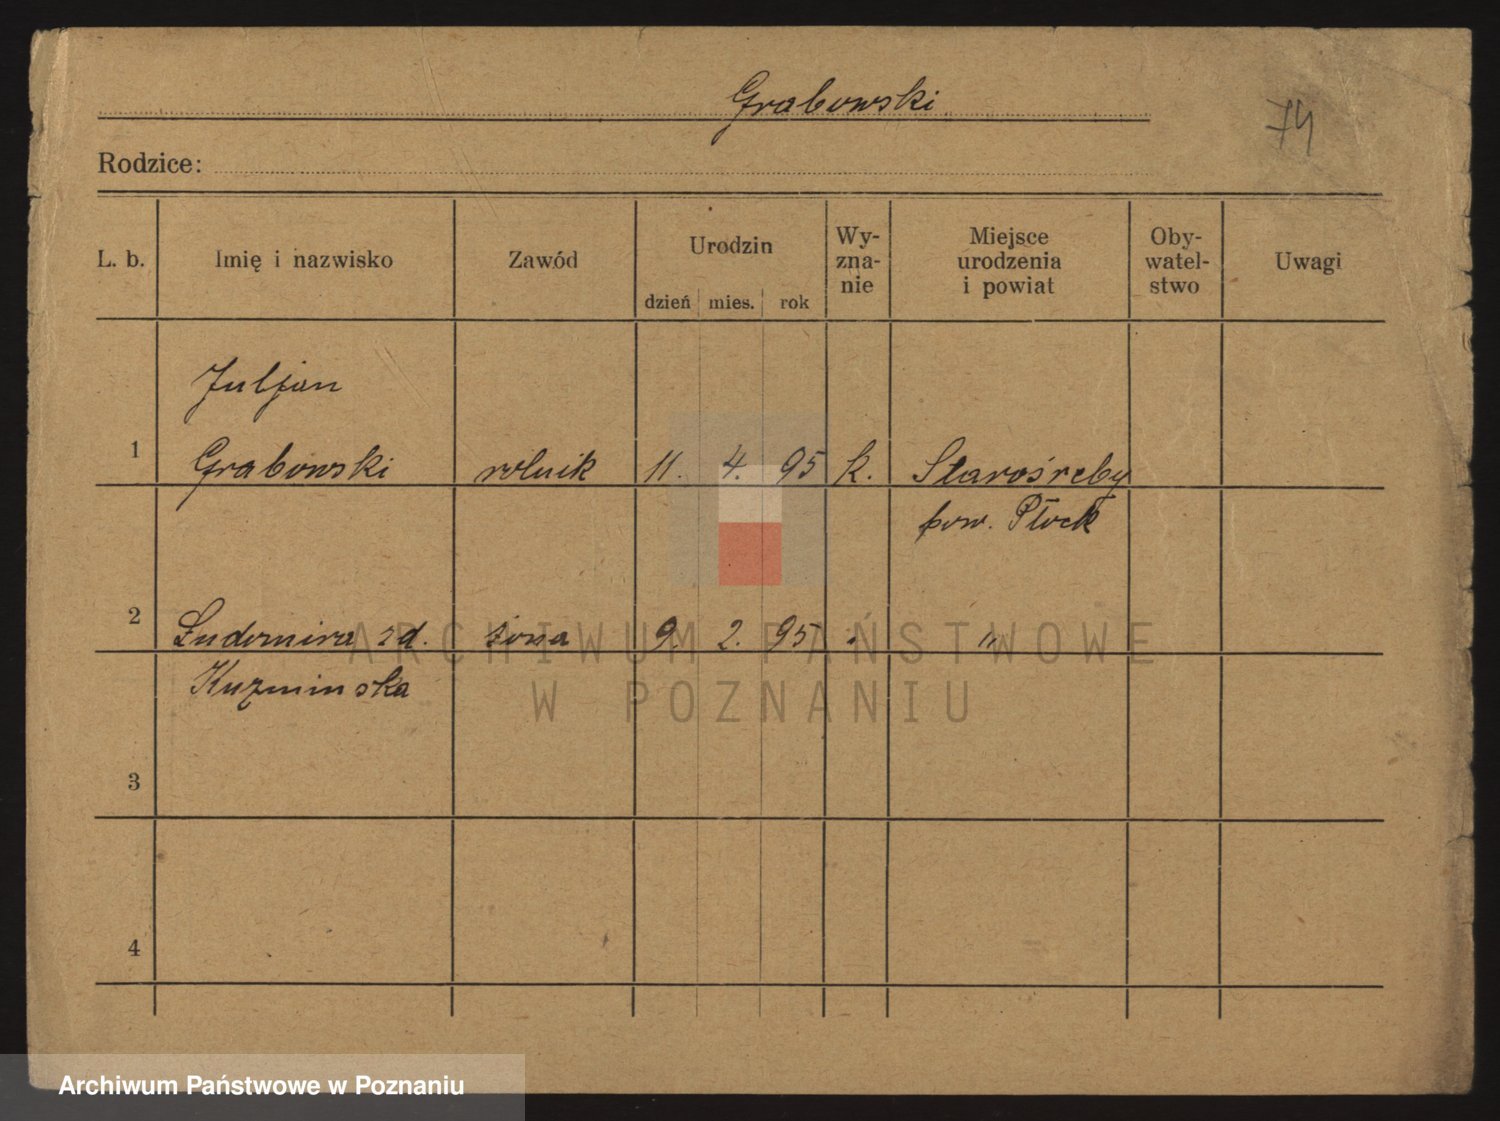 Grabowski
74
Rodzice:
L. b. Imię i nazwisko Zawód Urodzin dzień mies. rok Wy-zna-nie Miejsce urodzenia i powiat Oby-watel-stwo Uwagi
Juljan
1 Grabowski rolnik 11. 4. 95 k. Starośreby
pow. Płock
2 Ludomira zd. żona 9. 2. 95 " "
Kuzminska
3
4
ARCHIWUM PAŃSTWOWE
W POZNANIU
Archiwum Państwowe w Poznaniu